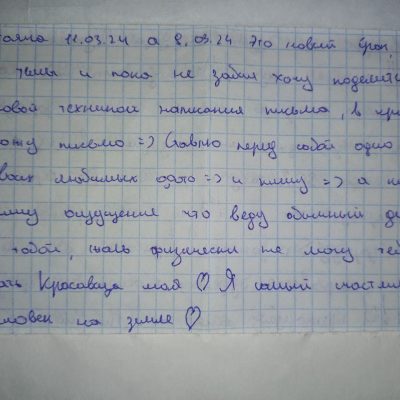 11.03.24 а 8.03.24 это новый
темы и пока не забыл хочу поделит
новой техникой написания письма, в
письмо =) Ставлю перед собой одно
своих любимых фото =) и пишу =) а
ощущение что веду обычный
тобой, жаль физически не могу
Красавица моя ♡ Я самый счастли
ловек на земле ♡